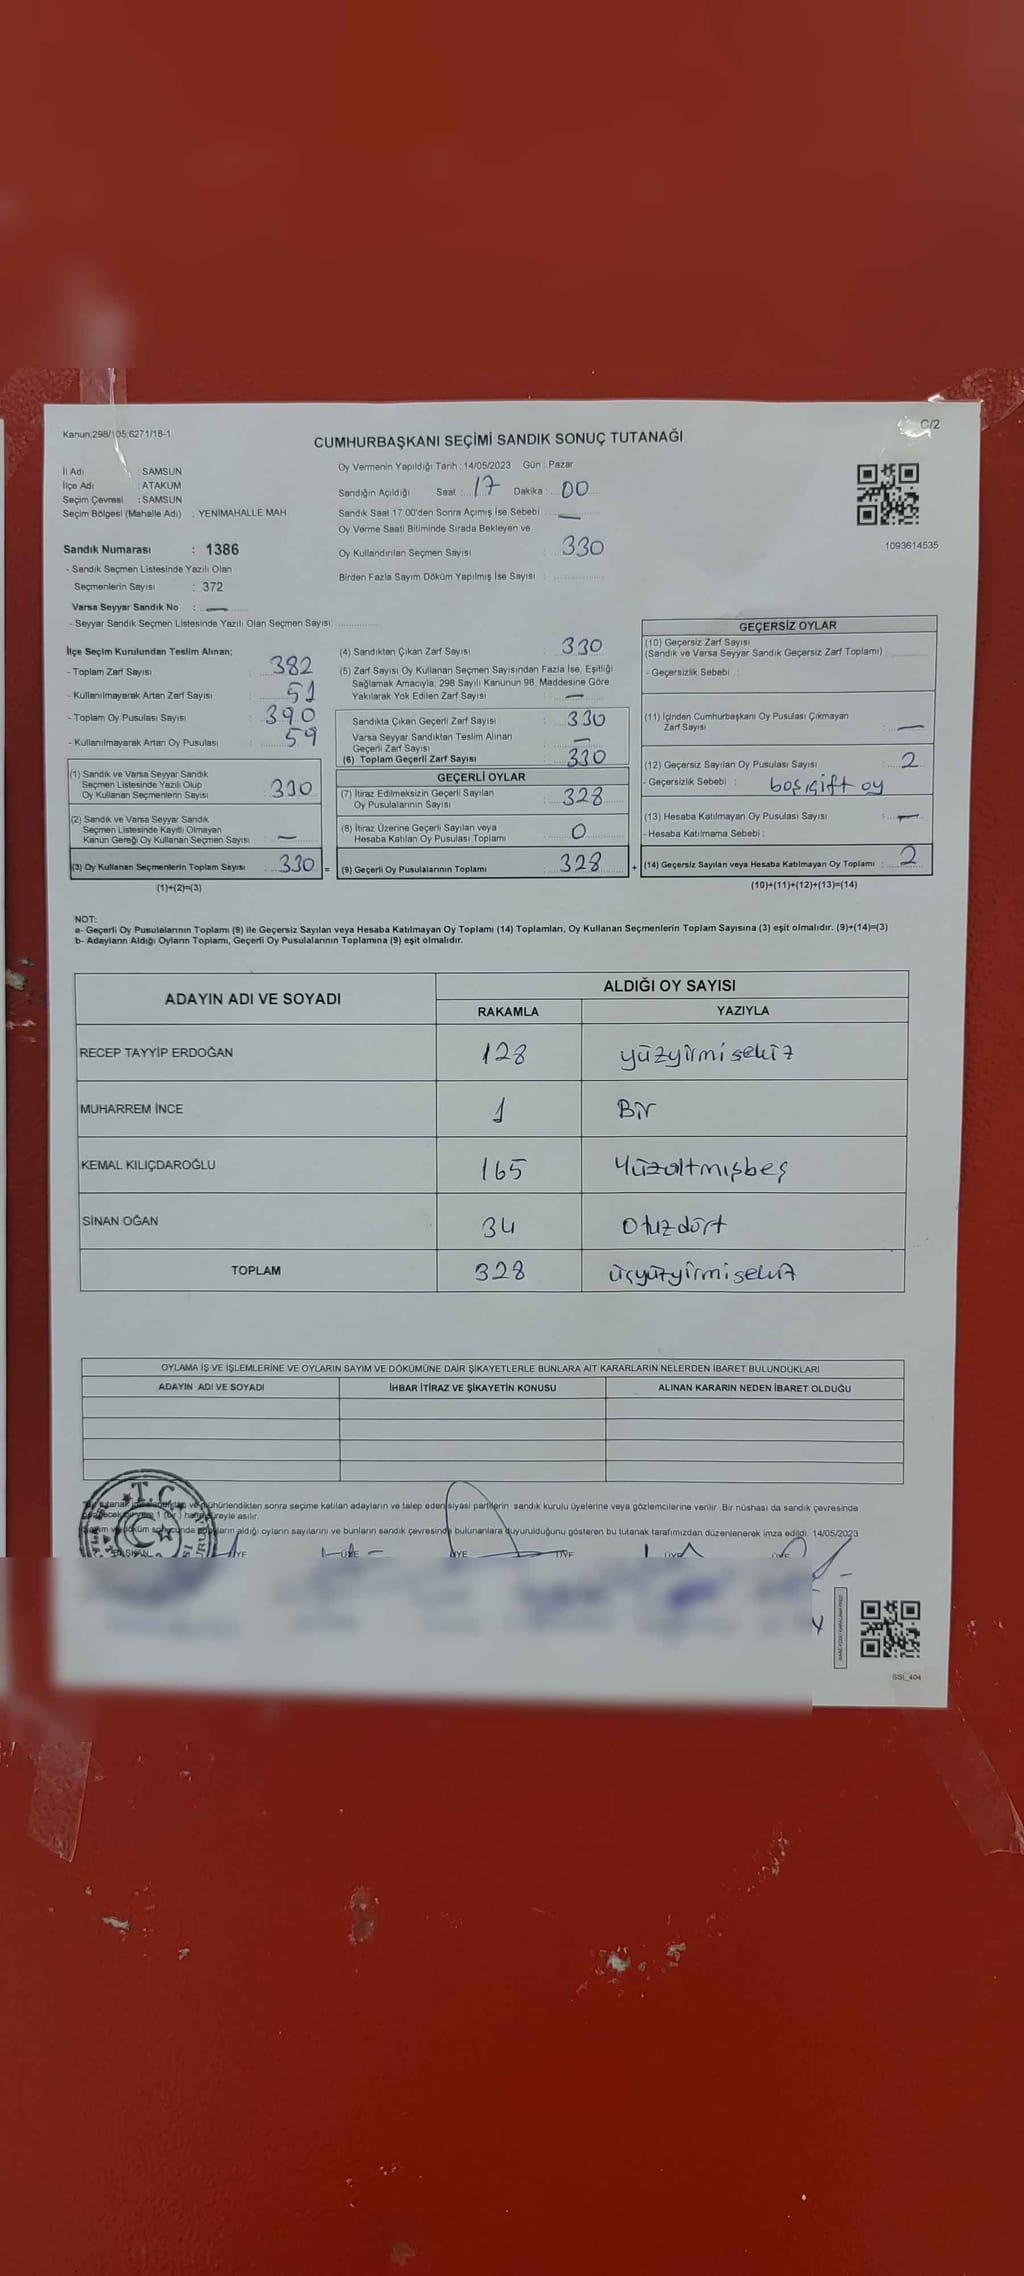 Kanun;298/105;6271/18-1
C/2
CUMHURBAŞKANI SEÇİMİ SANDIK SONUÇ TUTANAĞI
İl Adı : SAMSUN
İlçe Adı : ATAKUM
Seçim Çevresi : SAMSUN
Seçim Bölgesi (Mahalle Adı) : YENİMAHALLE MAH
Sandık Numarası : 1386
- Sandık Seçmen Listesinde Yazılı Olan
Seçmenlerin Sayısı : 372
Varsa Seyyar Sandık No : —
- Seyyar Sandık Seçmen Listesinde Yazılı Olan Seçmen Sayısı:
Oy Vermenin Yapıldığı Tarih : 14/05/2023 Gün : Pazar
Sandığın Açıldığı Saat : 17 Dakika : 00
Sandık Saat 17:00'den Sonra Açımış İse Sebebi : —
Oy Verme Saati Bitiminde Sırada Bekleyen ve
Oy Kullandırılan Seçmen Sayısı : 330
Birden Fazla Sayım Döküm Yapılmış İse Sayısı :
1093614535
İlçe Seçim Kurulundan Teslim Alınan;
- Toplam Zarf Sayısı : 382
- Kullanılmayarak Artan Zarf Sayısı : 51
- Toplam Oy Pusulası Sayısı : 390
- Kullanılmayarak Artan Oy Pusulası : 59
(1) Sandık ve Varsa Seyyar Sandık
Seçmen Listesinde Yazılı Olup
Oy Kullanan Seçmenlerin Sayısı : 330
(2) Sandık ve Varsa Seyyar Sandık
Seçmen Listesinde Kayıtlı Olmayan
Kanun Gereği Oy Kullanan Seçmen Sayısı : —
(3) Oy Kullanan Seçmenlerin Toplam Sayısı : 330
(1)+(2)=(3)
(4) Sandıktan Çıkan Zarf Sayısı : 330
(5) Zarf Sayısı Oy Kullanan Seçmen Sayısından Fazla İse, Eşitliği
Sağlamak Amacıyla; 298 Sayılı Kanunun 98. Maddesine Göre
Yakılarak Yok Edilen Zarf Sayısı : —
Sandıkta Çıkan Geçerli Zarf Sayısı : 330
Varsa Seyyar Sandıktan Teslim Alınan
Geçerli Zarf Sayısı : —
(6) Toplam Geçerli Zarf Sayısı : 330
GEÇERLİ OYLAR
(7) İtiraz Edilmeksizin Geçerli Sayılan
Oy Pusulalarının Sayısı : 328
(8) İtiraz Üzerine Geçerli Sayılan veya
Hesaba Katılan Oy Pusulası Toplamı : 0
= (9) Geçerli Oy Pusulalarının Toplamı : 328
GEÇERSİZ OYLAR
(10) Geçersiz Zarf Sayısı
(Sandık ve Varsa Seyyar Sandık Geçersiz Zarf Toplamı) :
- Geçersizlik Sebebi :
(11) İçinden Cumhurbaşkanı Oy Pusulası Çıkmayan
Zarf Sayısı : —
(12) Geçersiz Sayılan Oy Pusulası Sayısı : 2
- Geçersizlik Sebebi : boş, çift oy
(13) Hesaba Katılmayan Oy Pusulası Sayısı : —
- Hesaba Katılmama Sebebi :
+ (14) Geçersiz Sayılan veya Hesaba Katılmayan Oy Toplamı : 2
(10)+(11)+(12)+(13)=(14)
NOT:
a- Geçerli Oy Pusulalarının Toplamı (9) ile Geçersiz Sayılan veya Hesaba Katılmayan Oy Toplamı (14) Toplamları, Oy Kullanan Seçmenlerin Toplam Sayısına (3) eşit olmalıdır. (9)+(14)=(3)
b- Adayların Aldığı Oyların Toplamı, Geçerli Oy Pusulalarının Toplamına (9) eşit olmalıdır.
ADAYIN ADI VE SOYADI
ALDIĞI OY SAYISI
RAKAMLA YAZIYLA
RECEP TAYYİP ERDOĞAN 128 yüzyirmisekiz
MUHARREM İNCE 1 Bir
KEMAL KILIÇDAROĞLU 165 Yüzaltmışbeş
SİNAN OĞAN 34 Otuzdört
TOPLAM 328 üçyüzyirmisekiz
OYLAMA İŞ VE İŞLEMLERİNE VE OYLARIN SAYIM VE DÖKÜMÜNE DAİR ŞİKAYETLERLE BUNLARA AİT KARARLARIN NELERDEN İBARET BULUNDUKLARI
ADAYIN ADI VE SOYADI İHBAR İTİRAZ VE ŞİKAYETİN KONUSU ALINAN KARARIN NEDEN İBARET OLDUĞU
mühürlendikten sonra seçime katılan adayların ve talep eden siyasi partilerin sandık kurulu üyelerine veya gözlemcilerine verilir. Bir nüshası da sandık çevresinde
1 (bir) hafta süreyle asılır.
aldığı oyların sayılarını ve bunların sandık çevresinde bulunanlara duyurulduğunu gösteren bu tutanak tarafımızdan düzenlenerek imza edildi. 14/05/2023
T.C.
BAŞKAN ÜYE ÜYE ÜYE ÜYE ÜYE ÜYE
SSI_404